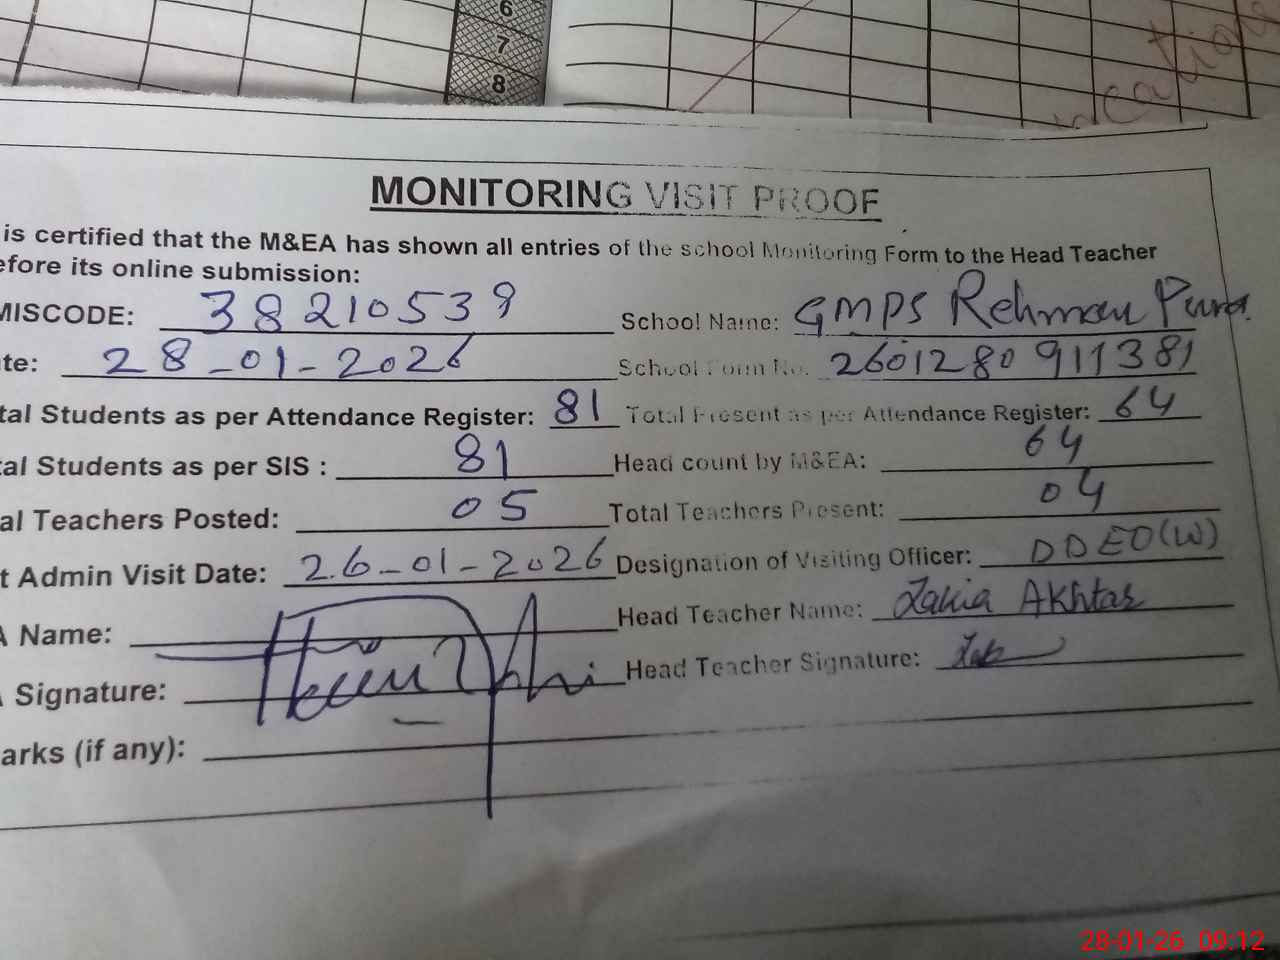 6
7
8
ucation
MONITORING VISIT PROOF
is certified that the M&EA has shown all entries of the school Monitoring Form to the Head Teacher
efore its online submission:
MISCODE: 38210539 School Name: GMPS Rehman Pura.
te: 28-01-2026 School Form No. 2601280911381
tal Students as per Attendance Register: 81 Total Present as per Attendance Register: 64
tal Students as per SIS : 81 Head count by M&EA: 64
al Teachers Posted: 05 Total Teachers Present: 04
t Admin Visit Date: 26-01-2026 Designation of Visiting Officer: DDEO(W)
A Name: Head Teacher Name: Zakia Akhtar
Signature: Head Teacher Signature:
arks (if any):
28-01-26 09:12